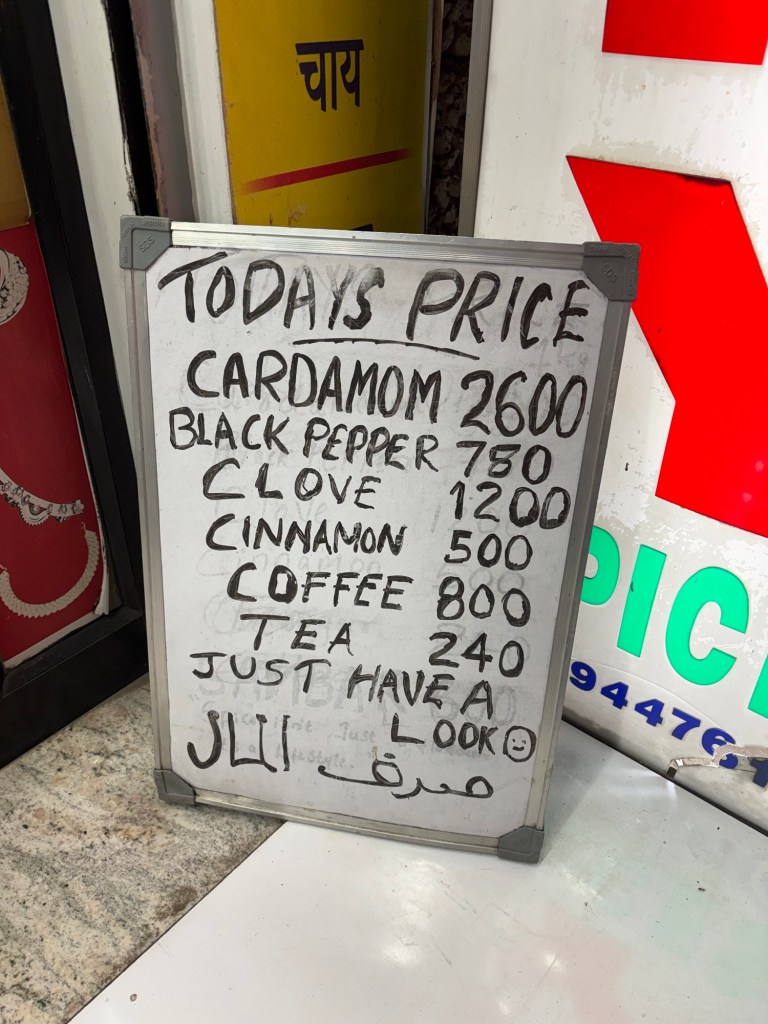 चाय
TODAYS PRICE
CARDAMOM 2600
BLACK PEPPER 780
CLOVE 1200
CINNAMON 500
COFFEE 800
TEA 240
JUST HAVE A
LOOK
صرف
PIC
944761